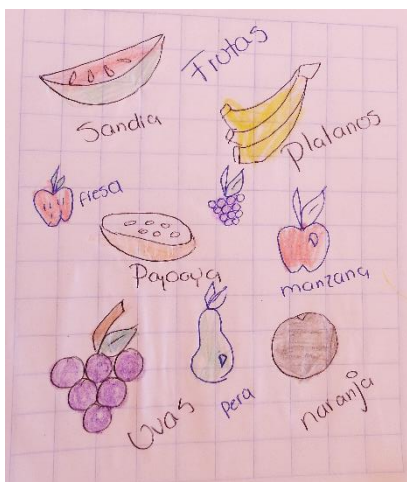 Frutas
Sandia
Platanos
fresa
Papaya
manzana
Uvas
pera
naranja